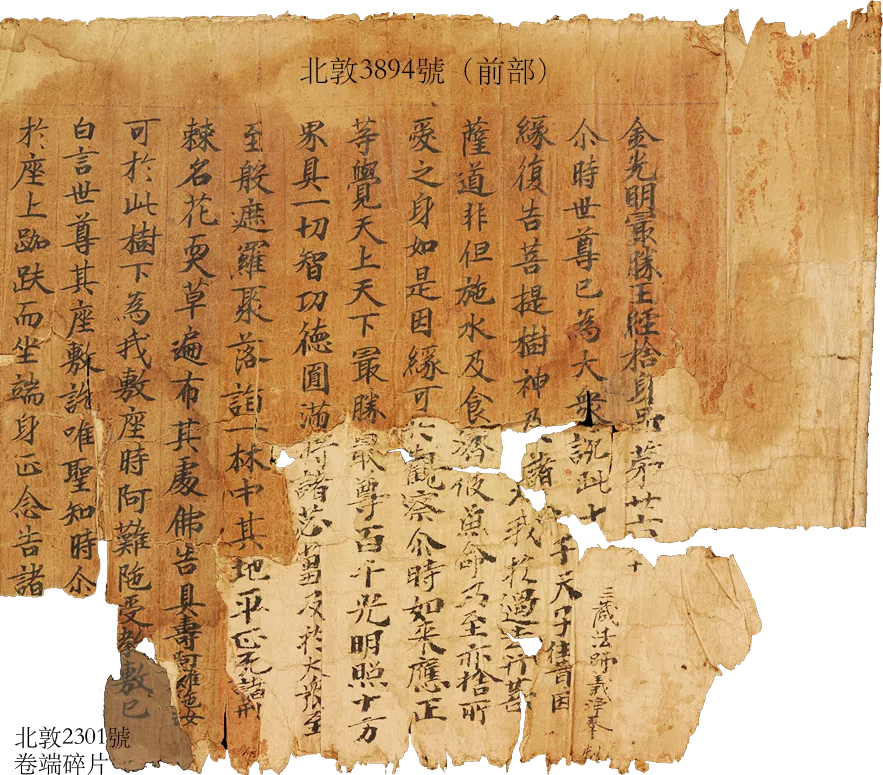 北敦3894號（前部）
金光明㝡勝王經捨身品苐廿六
三藏法師義淨奉
尒時世尊已為大衆說此十千天子往昔因
緣復告菩提樹神及諸大我於過去行菩
薩道非但施水及食濟彼魚命乃至亦捨所
愛之身如是因緣可共觀察尒時如來應正
等覺天上天下㝡勝㝡尊百千光明照十方
界具一切智功德圓滿將諸苾蒭及於大衆至
至般遮羅聚落詣一林中其地平正无諸荊
棘名花耎草遍布其處佛告具壽阿難陁汝
可於此樹下為我敷座時阿難陁受教敷已
白言世尊其座敷訖唯聖知時尒
於座上跏趺而坐端身正念告諸
北敦2301號
卷端碎片